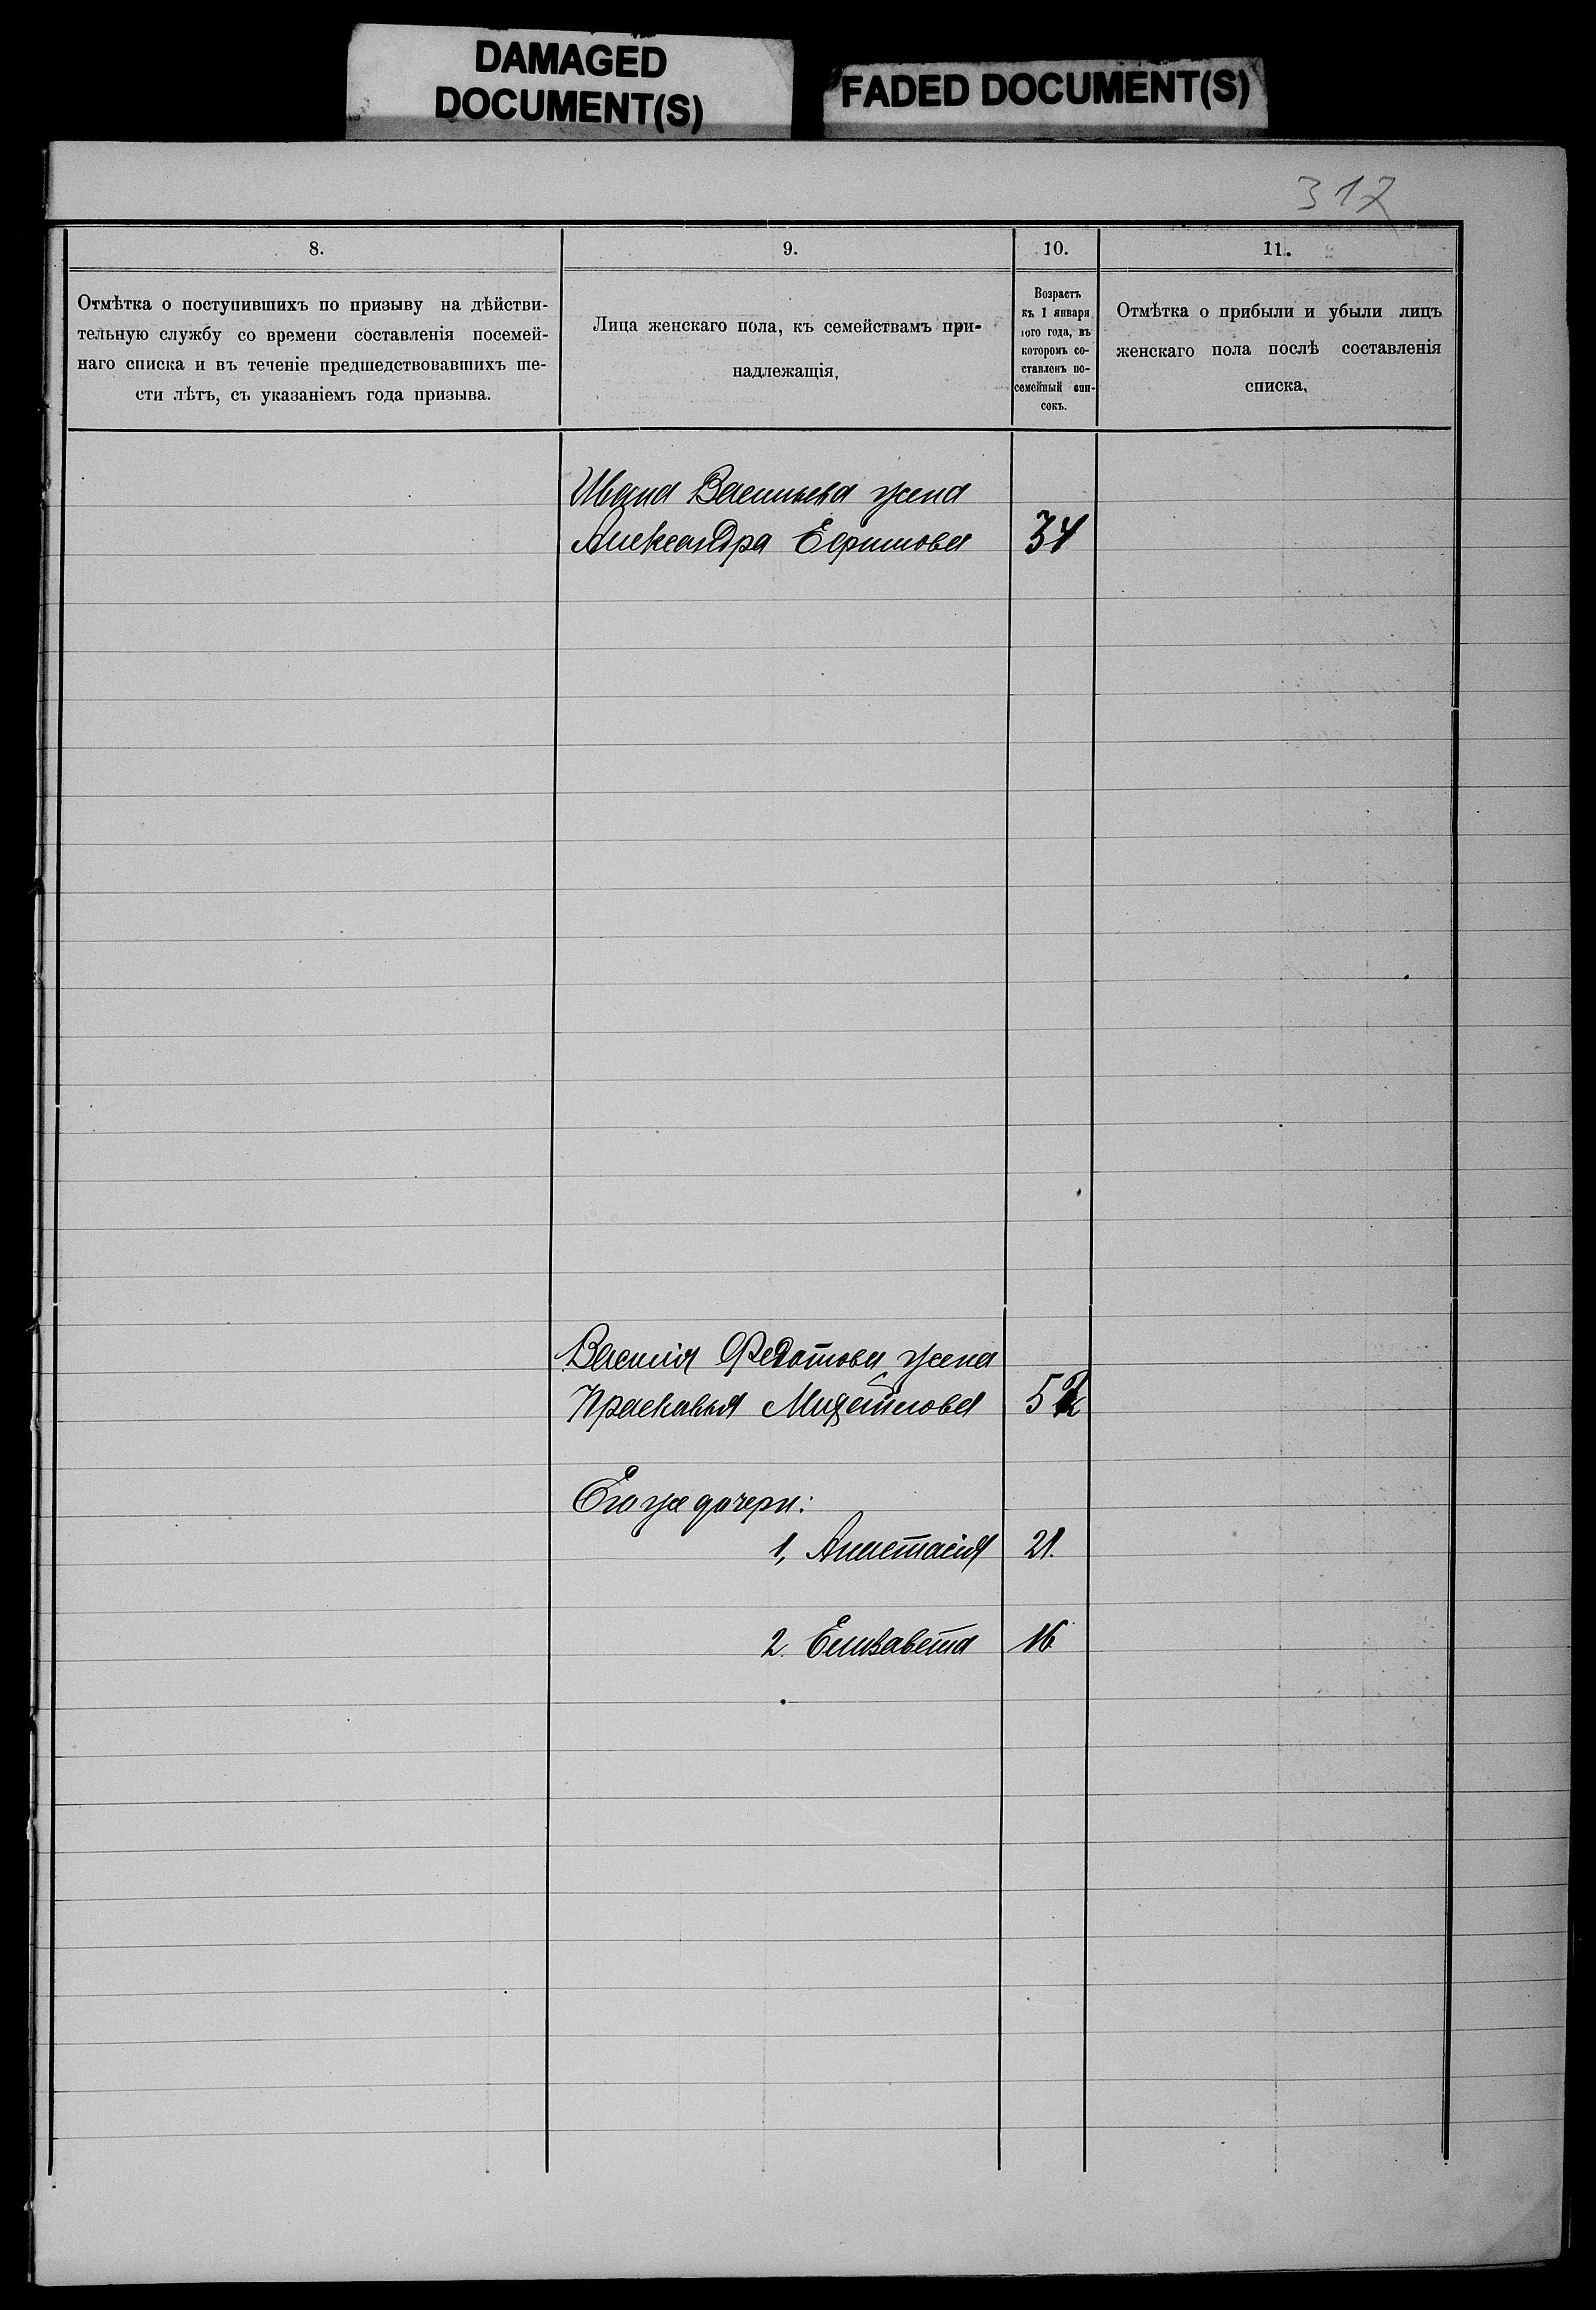 DAMAGED
DOCUMENT(S)
FADED DOCUMENT(S)
317
8.
Отмѣтка о поступившихъ по призыву на дѣйстви-
тельную службу со времени составленія посемей-
наго списка и въ теченіе предшедствовавшихъ ше-
сти лѣтъ, съ указаніемъ года призыва.
9.
Лица женскаго пола, къ семействамъ при-
надлежащія,
10.
Возрастъ
къ 1 января
того года, въ
которомъ со-
ставленъ по-
семейный спи-
сокъ.
11.
Отмѣтка о прибыли и убыли лицъ
женскаго пола послѣ составленія
списка,
Ивана Васильева жена
Александра Ефимова 34
Василія Федотова жена
Прасковья 52
Его же дочери:
1, Анастасія 21.
2. Елизавета 16.